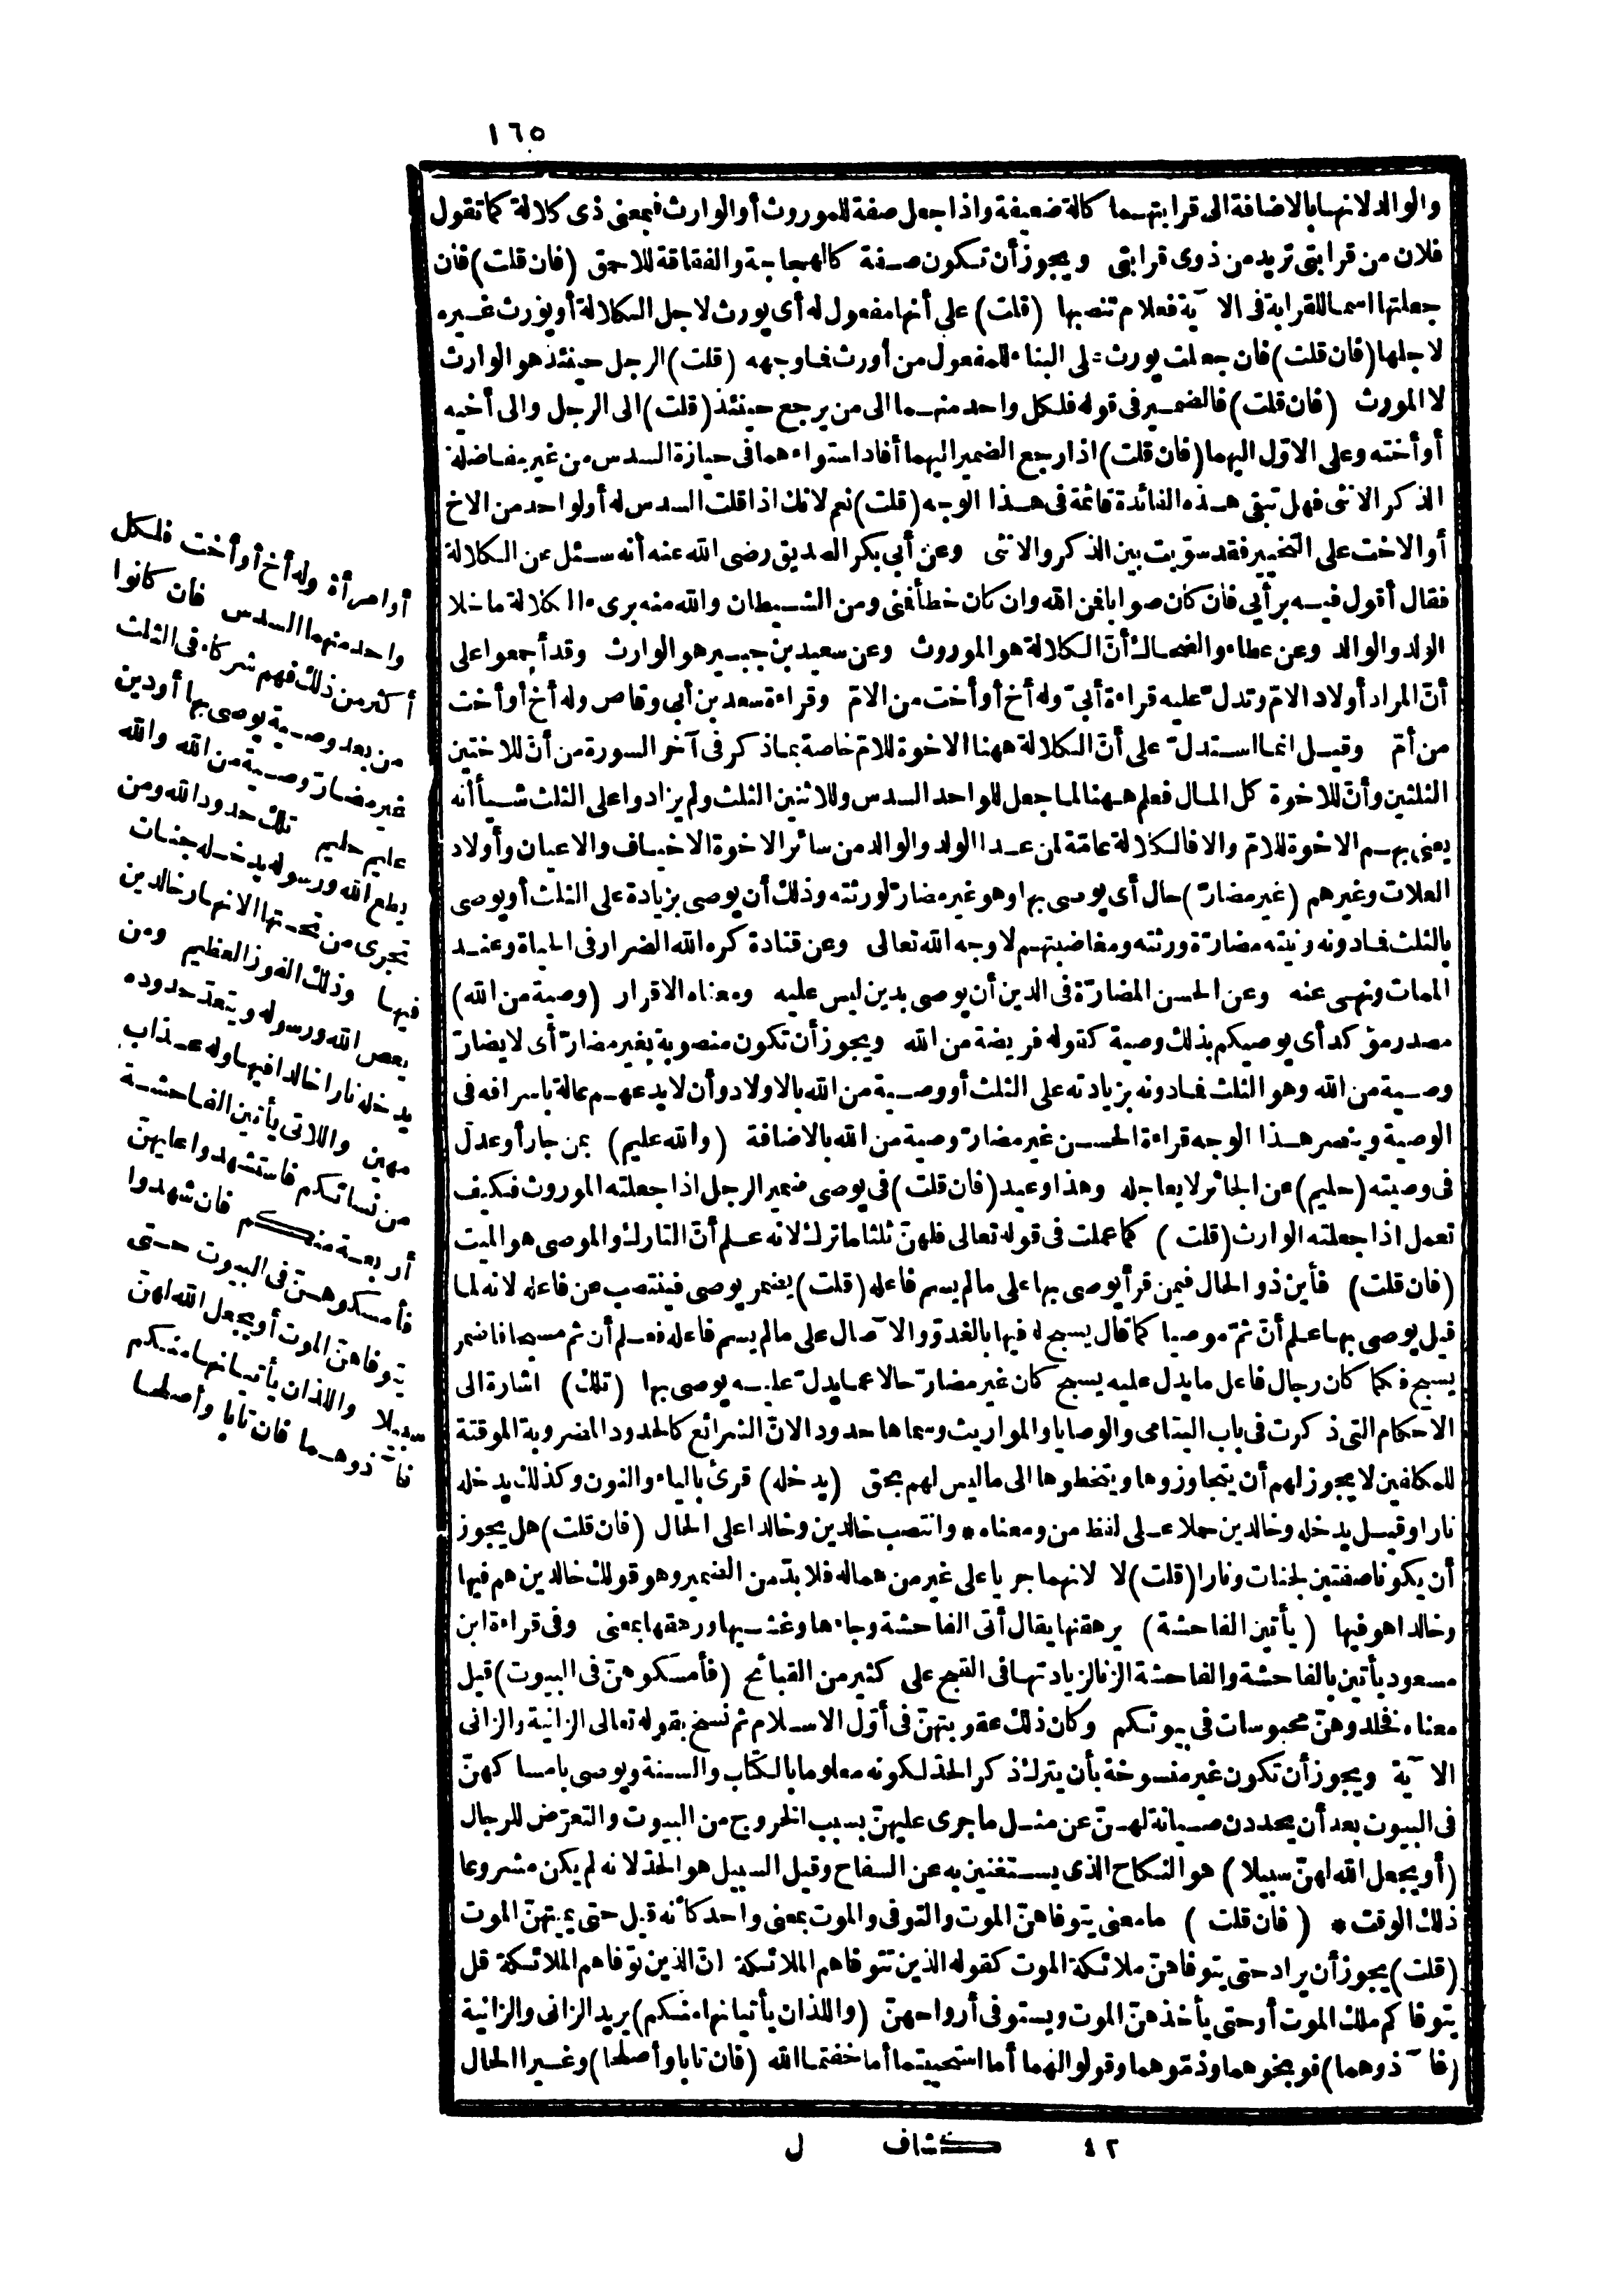 ١٦٥
والوالد لانها بالاضافة الى قرابتهما كالة ضعيفة واذا جعل صفة للموروث أو الوارث فبمعنى ذى كلالة كما تقول
فلان من قرابتى تريد من ذوى قرابتى ويجوز أن تكون صفة كالهجاجة والفقاقة للاحمق (فان قلت) فان
جعلتها اسما للقرابة فى الآية فعلام تنصبها (قلت) على أنها مفعول له أى يورث لاجل الكلالة أو يورث غيره
لاجلها (فان قلت) فان جعلت يورث على البناء للمفعول من أورث فما وجهه (قلت) الرجل حينئذ هو الوارث
لا الموروث (فان قلت) فالضمير فى قوله فلكل واحد منهما الى من يرجع حينئذ (قلت) الى الرجل والى أخيه
أو أخته وعلى الاوّل اليهما (فان قلت) اذا رجع الضمير اليهما أفاد استواءهما فى حيازة السدس من غير مفاضلة
الذكر الانثى فهل تبقى هذه الفائدة قائمة فى هذا الوجه (قلت) نعم لانك اذا قلت السدس له أو لواحد من الاخ
أو الاخت على التخيير فقد سوّيت بين الذكر والانثى وعن أبى بكر الصديق رضى الله عنه أنه سئل عن الكلالة
فقال أقول فيه برأيى فان كان صوابا فمن الله وان كان خطأ فمنى ومن الشيطان والله منه برىء الكلالة ما خلا
الولد والوالد وعن عطاء والضحاك أنّ الكلالة هو الموروث وعن سعيد بن جبير هو الوارث وقد أجمعوا على
أنّ المراد أولاد الامّ وتدلّ عليه قراءة أبىّ وله أخ أو أخت من الامّ وقراءة سعد بن أبى وقاص وله أخ أو أخت
من أمّ وقيل انما استدلّ على أنّ الكلالة ههنا الاخوة للامّ خاصة بما ذكر فى آخر السورة من أنّ للاختين
الثلثين وأنّ للاخوة كل المال فعلم ههنا لما جعل للواحد السدس وللاثنين الثلث ولم يزادوا على الثلث شيأ أنه
يعنى بهم الاخوة للامّ والا فالكلالة عامّة لمن عدا الولد والوالد من سائر الاخوة الاخياف والاعيان وأولاد
العلات وغيرهم (غير مضارّ) حال أى يوصى بها وهو غير مضارّ لورثته وذلك أن يوصى بزيادة على الثلث أو يوصى
بالثلث فمادونه ونيته مضارّة ورثته ومغاضبتهم لا وجه الله تعالى وعن قتادة كره الله الضرار فى الحياة وعند
الممات ونهى عنه وعن الحسن المضارّة فى الدين أن يوصى بدين ليس عليه ومعناه الاقرار (وصية من الله)
مصدر مؤكد أى يوصيكم بذلك وصية كقوله فريضة من الله ويجوز أن تكون منصوبة بغير مضارّ أى لا يضارّ
وصية من الله وهو الثلث فمادونه بزيادته على الثلث أو وصية من الله بالاولاد وأن لا يدعهم عالة باسرافه فى
الوصية وينصر هذا الوجه قراءة الحسن غير مضارّ وصية من الله بالاضافة (والله عليم) بمن جار أو عدل
فى وصيته (حليم) عن الجائر لا يعاجله وهذا وعيد (فان قلت) فى يوصى ضمير الرجل اذا جعلته الموروث فكيف
تعمل اذا جعلته الوارث (قلت) كما عملت فى قوله تعالى فلهنّ ثلثا ما ترك لانه علم أنّ التارك والموصى هو الميت
(فان قلت) فأين ذو الحال فيمن قرأ يوصى بها على ما لم يسم فاعله (قلت) يضمر يوصى فينتصب عن فاعله لانه لما
قيل يوصى بها علم أنّ ثمّ موصيا كما قال يسبح له فيها بالغدوّ والآصال على ما لم يسم فاعله فعلم أن ثم مسبحا فاضمر
يسبح فكما كان رجال فاعل ما يدل عليه يسبح كان غير مضارّ حالا عما يدلّ عليه يوصى بها (تلك) اشارة الى
الاحكام التى ذكرت فى باب اليتامى والوصايا والمواريث وسماها حدودا لانّ الشرائع كالحدود المضروبة الموقتة
للمكلفين لا يجوز لهم أن يتجاوزوها ويتخطوها الى ما ليس لهم بحق (يدخله) قرئ بالياء والنون وكذلك يدخله
نارا وقيل يدخله وخالدين حملا على لفظ من ومعناه * وانتصب خالدين وخالدا على الحال (فان قلت) هل يجوز
أن يكونا صفتين لجنات ونارا (قلت) لا لانهما جريا على غير من هما له فلا بدّ من الضمير وهو قولك خالدين هم فيها
وخالدا هو فيها (يأتين الفاحشة) يرهقنها يقال أتى الفاحشة وجاءها وغشيها ورهقها بمعنى وفى قراءة ابن
مسعود يأتين بالفاحشة والفاحشة الزنا لزيادتها فى القبح على كثير من القبائح (فأمسكوهنّ فى البيوت) قيل
معناه فخلدوهنّ محبوسات فى بيوتكم وكان ذلك عقوبتهنّ فى أوّل الاسلام ثم نسخ بقوله تعالى الزانية والزانى
الآية ويجوز أن تكون غير منسوخة بأن يترك ذكر الحدّ لكونه معلوما بالكتاب والسنة ويوصى بامساكهنّ
فى البيوت بعد أن يحددن صيانة لهنّ عن مثل ما جرى عليهنّ بسبب الخروج من البيوت والتعرّض للرجال
(أو يجعل الله لهنّ سبيلا) هو النكاح الذى يستغنين به عن السفاح وقيل السبيل هو الحدّ لانه لم يكن مشروعا
ذلك الوقت * (فان قلت) ما معنى يتوفاهنّ الموت والتوفى والموت بمعنى واحد كأنه قيل حتى يميتهنّ الموت
(قلت) يجوز أن يراد حتى يتوفاهنّ ملائكة الموت كقوله الذين تتوفاهم الملائكة انّ الذين توفاهم الملائكة قل
يتوفاكم ملك الموت أو حتى يأخذهنّ الموت ويستوفى أرواحهنّ (واللذان يأتيانها منكم) يريد الزانى والزانية
(فآذوهما) فوبخوهما وذمّوهما وقولوا لهما أما استحييتما أما خفتما الله (فان تابا وأصلحا) وغيرا الحال
أو امرأة وله أخ أو أخت فلكل
واحد منهما السدس فان كانوا
أكثر من ذلك فهم شركاء فى الثلث
من بعد وصية يوصى بها أو دين
غير مضارّ وصية من الله والله
عليم حليم تلك حدود الله ومن
يطع الله ورسوله يدخله جنات
تجرى من تحتها الانهار خالدين
فيها وذلك الفوز العظيم ومن
يعص الله ورسوله ويتعدّ حدوده
يدخله نارا خالدا فيها وله عذاب
مهين واللاتى يأتين الفاحشة
من نسائكم فاستشهدوا عليهنّ
أربعة منكم فان شهدوا
فأمسكوهنّ فى البيوت حتى
يتوفاهنّ الموت أو يجعل الله لهنّ
سبيلا واللذان يأتيانها منكم
فآذوهما فان تابا وأصلحا
٤٢ كشاف ل